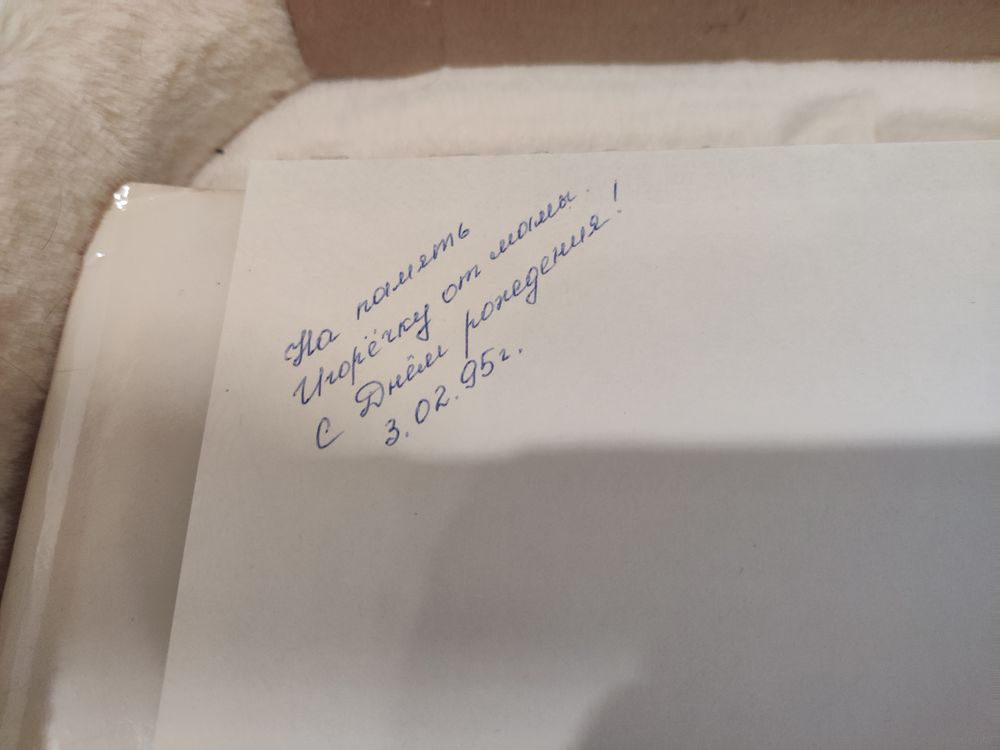 На память
Игорёчку от мамы.
С Днём рождения!
3.02.95г.